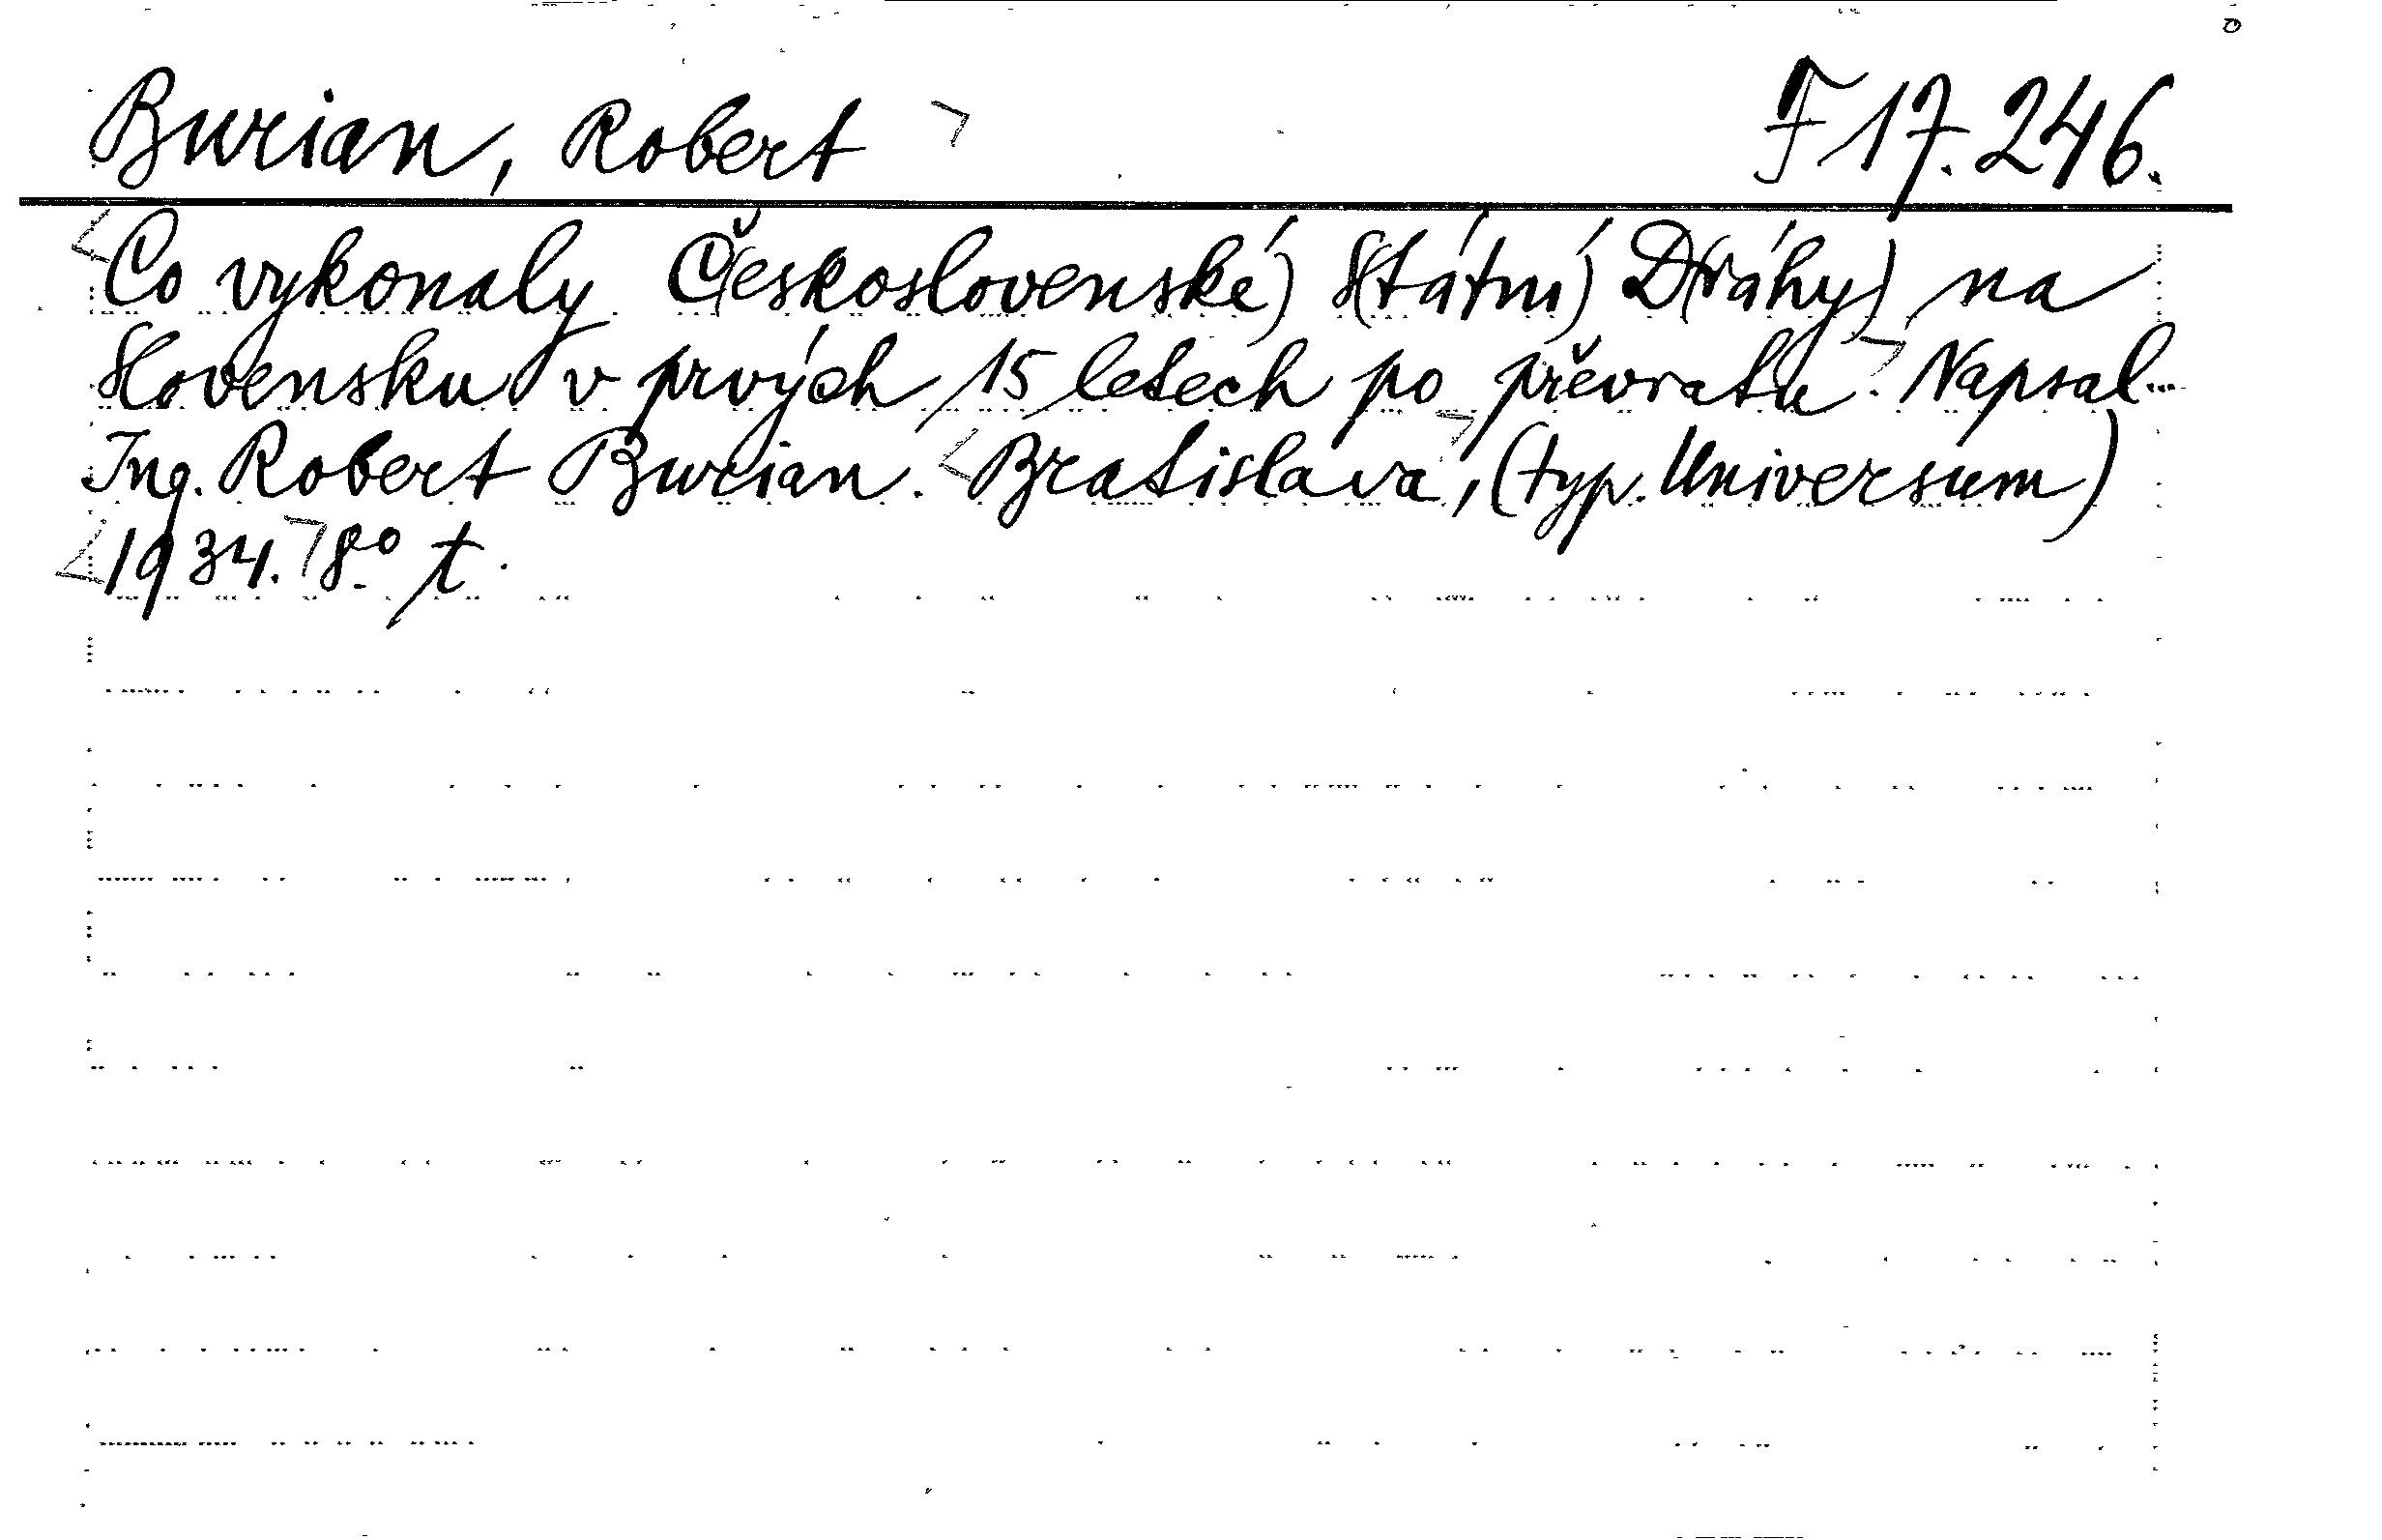 Burian, Robert F 17.246.
Co vykonaly Č(eskoslovenské) S(tátní) D(ráhy) na
Slovensku v prvých 15 letech po převratu. Napsal...
Ing. Robert Burian. Bratislava, (typ. Universum)
1934. 8° t.